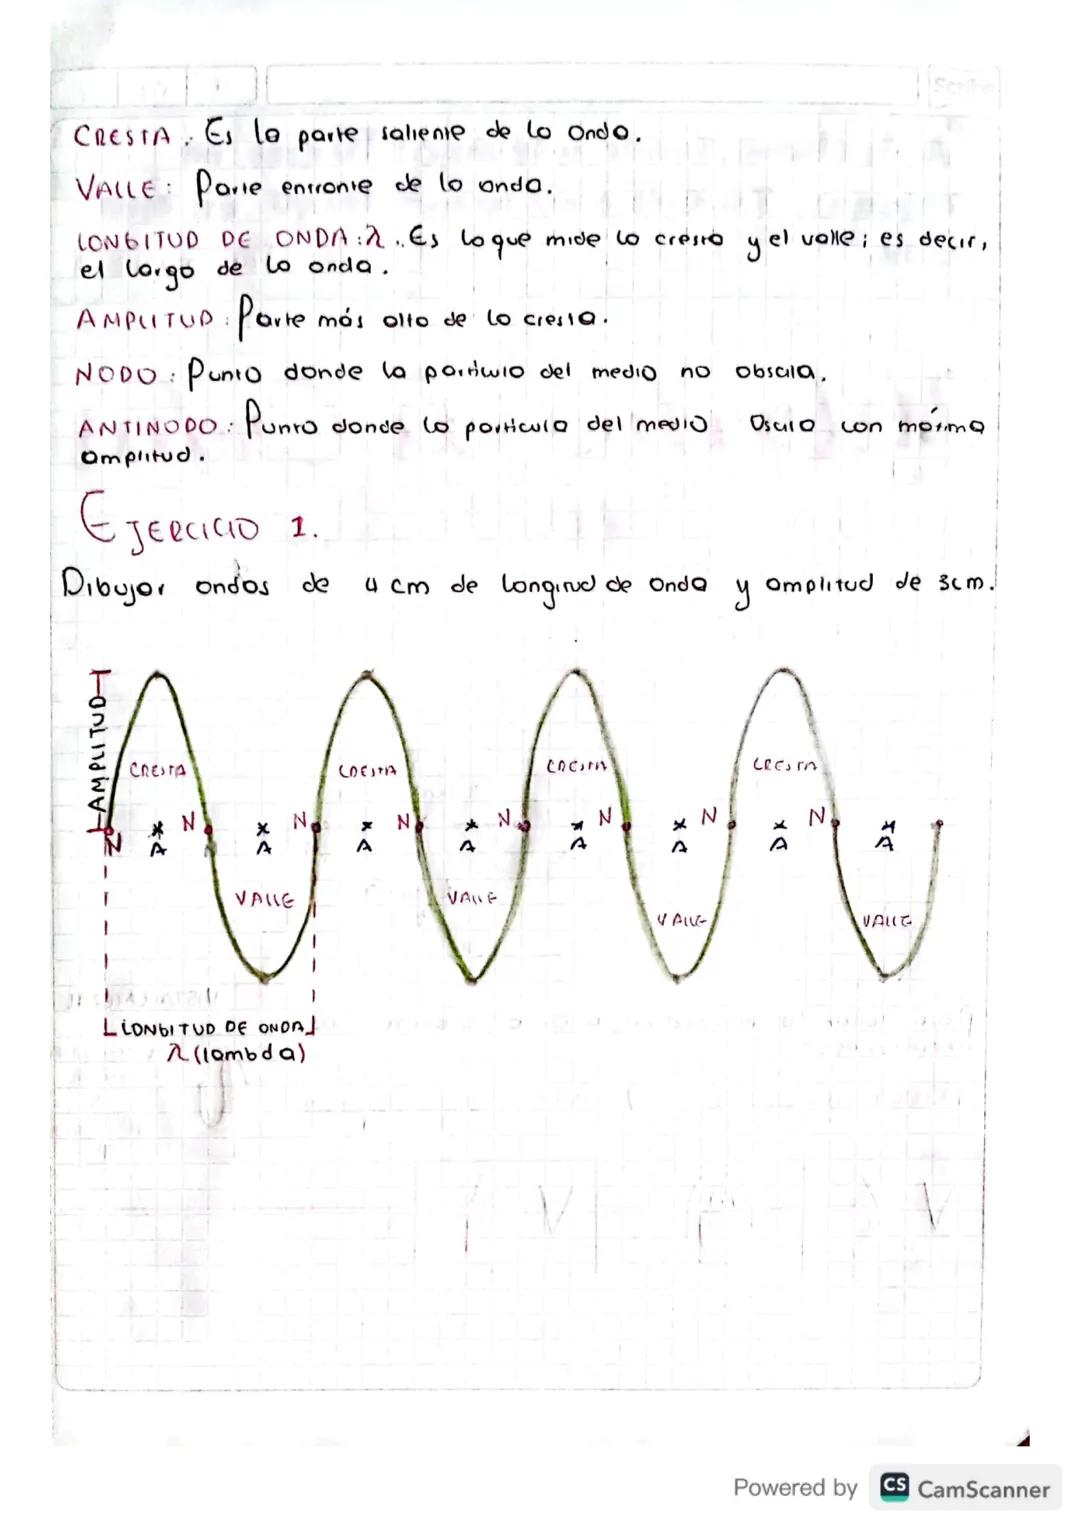 Scribe
CRESTA: Es la parte saliente de la onda.
VALLE: Parte entrante de la onda.
LONGITUD DE ONDA: λ. Es lo que mide la cresta y el valle; es decir,
el largo de la onda.
AMPLITUD: Parte más alta de la cresta.
NODO: Punto donde la partícula del medio no obscila.
ANTINODO: Punto donde la partícula del medio Oscila con máxima
amplitud.
EJERCICIO 1.
Dibujar ondas de 4 cm de longitud de onda y amplitud de 3cm.
AMPLITUD
CRESTA CRESTA CRESTA CRESTA
N N N N N N N N
A A A A A A A A
VALLE VALLE VALLE VALLE
LONGITUD DE ONDA
λ (lambda)
Powered by CS CamScanner